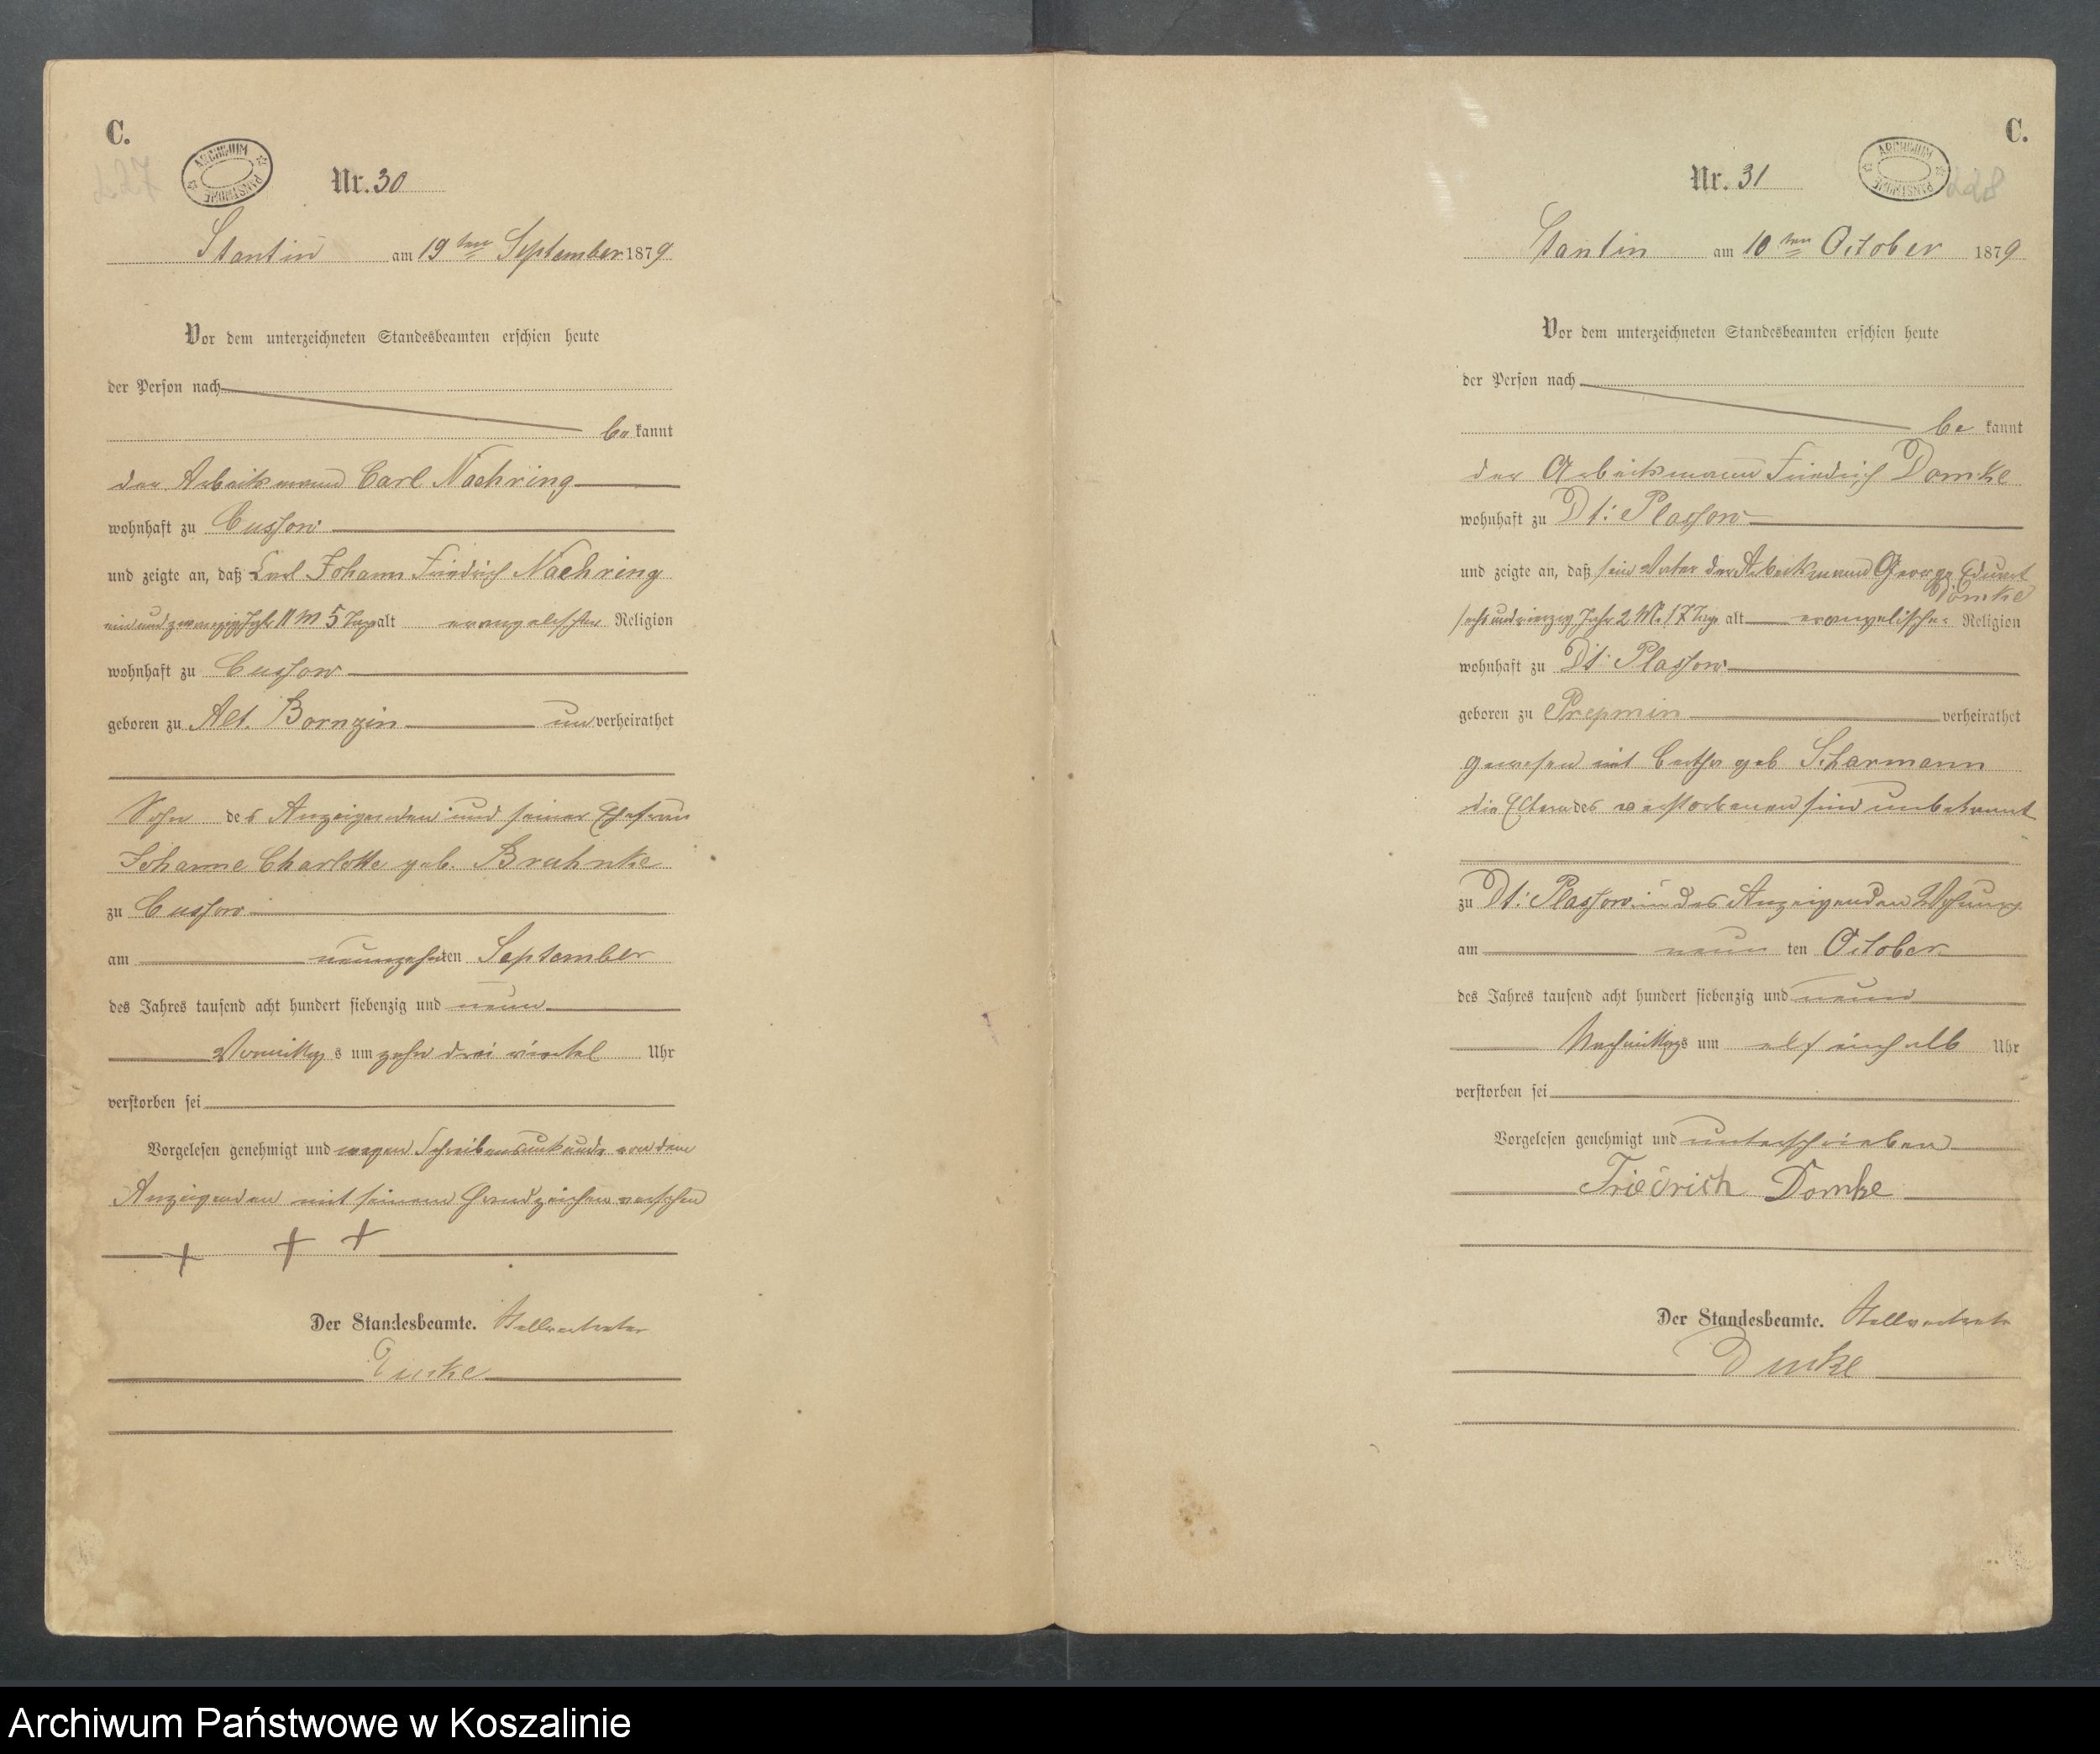 C.
227
ARCHIWUM PAŃSTWOWE
Nr. 30
Stantin am 19 ten September 1879
Vor dem unterzeichneten Standesbeamten erschien heute
der Person nach
be kannt
der Arbeitsmann Carl Naehring
wohnhaft zu Cussow
und zeigte an, daß Carl Johann Friedrich Naehring
ein und zwanzig Jahr 11 M 5 Tage alt evangelischer Religion
wohnhaft zu Cussow
geboren zu Alt. Bornzin un verheirathet
Sohn des Anzeigenden und seiner Ehefrau
Johanne Charlotte geb. Bruhnke
zu Cussow
am neunzehnten September
des Jahres tausend acht hundert siebenzig und neun
Vormittags um zehn drei viertel Uhr
verstorben sei
Vorgelesen genehmigt und wegen Schreibensunkunde von dem
Anzeigenden mit seinem Handzeichen versehen
+ + +
Der Standesbeamte. Stellvertreter
C.
228
ARCHIWUM PAŃSTWOWE
Nr. 31
Stantin am 10 ten October 1879
Vor dem unterzeichneten Standesbeamten erschien heute
der Person nach
be kannt
der Arbeitsmann Friedrich Domke
wohnhaft zu Dt: Plassow
und zeigte an, daß sein Vater der Arbeitsmann George Eduart
Domke
Jahr 2 M. 17 Tage alt evangelischer Religion
wohnhaft zu Dt: Plassow
geboren zu Prepmin verheirathet
gewesen mit geb Scharmann
die Eltern des verstorbenen sind unbekannt
zu Dt: Plassow in des Anzeigenden Wohnung
am neun ten October
des Jahres tausend acht hundert siebenzig und neun
Nachmittags um elf einhalb Uhr
verstorben sei
Vorgelesen genehmigt und unterschrieben
Friedrich Domke
Der Standesbeamte. Stellvertreter
Archiwum Państwowe w Koszalinie